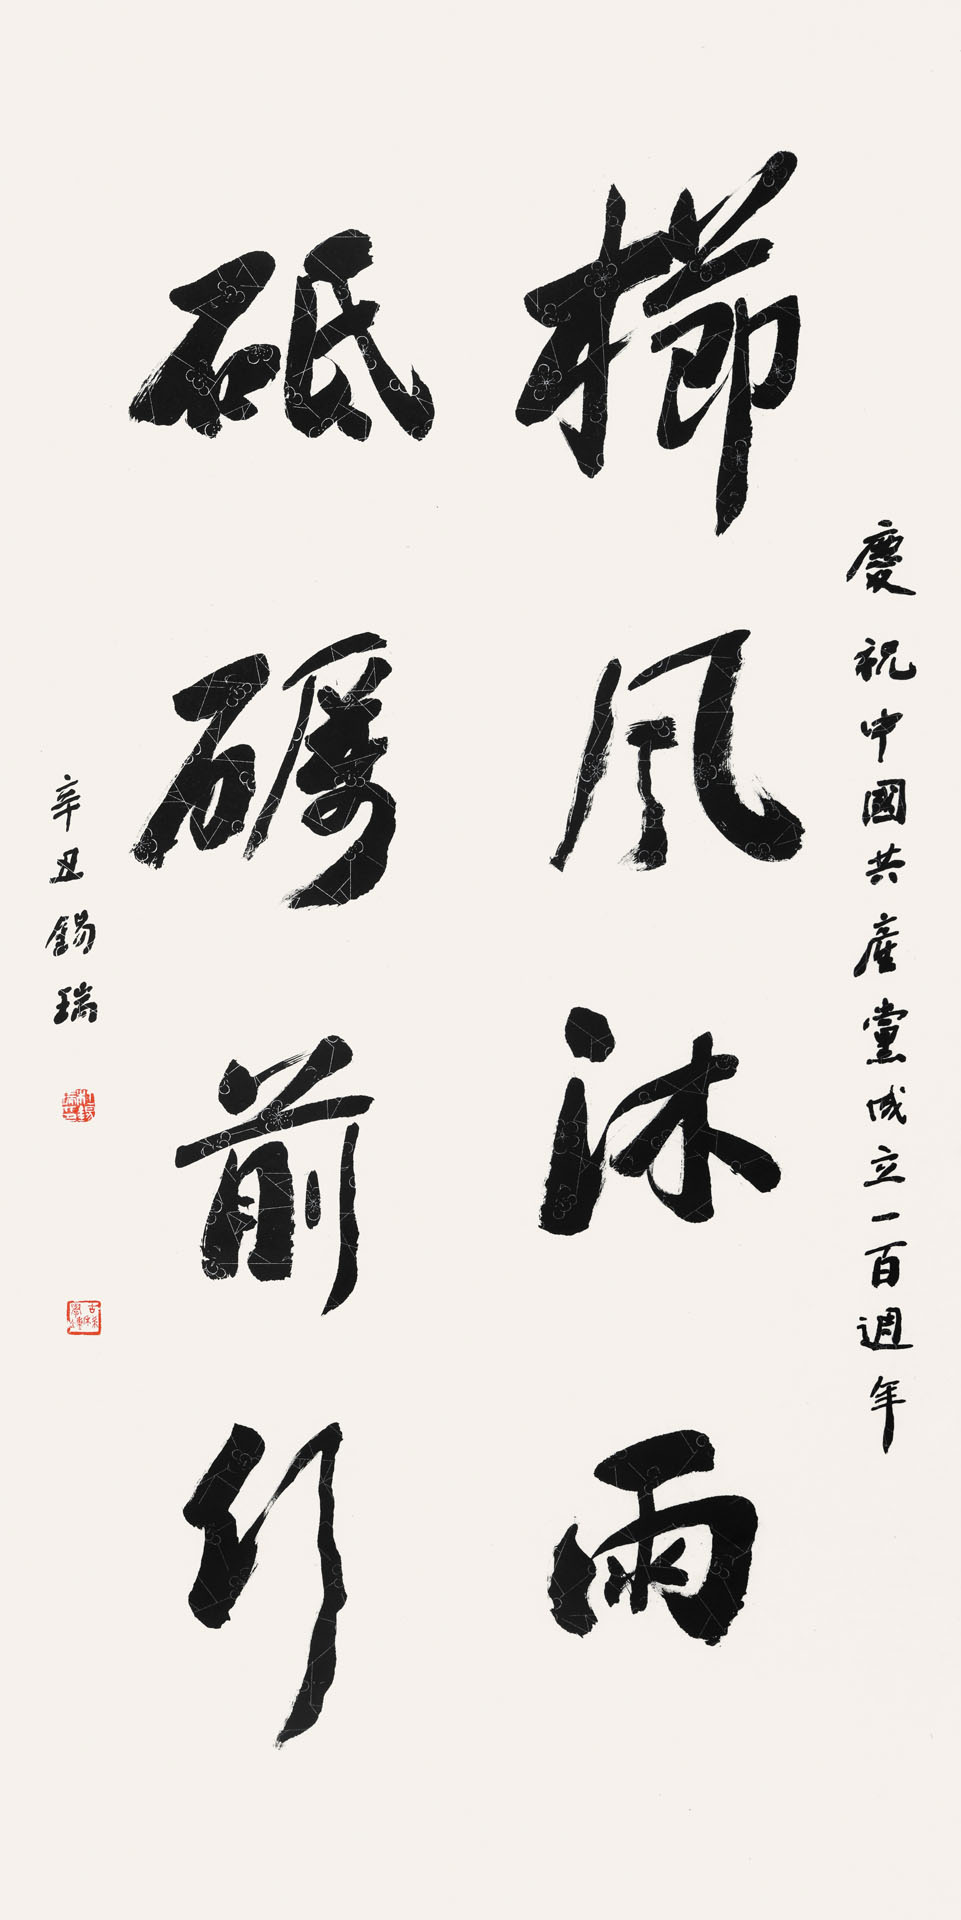 慶祝中國共産黨成立一百週年
櫛風沐雨
砥礪前行
辛丑錫瑞